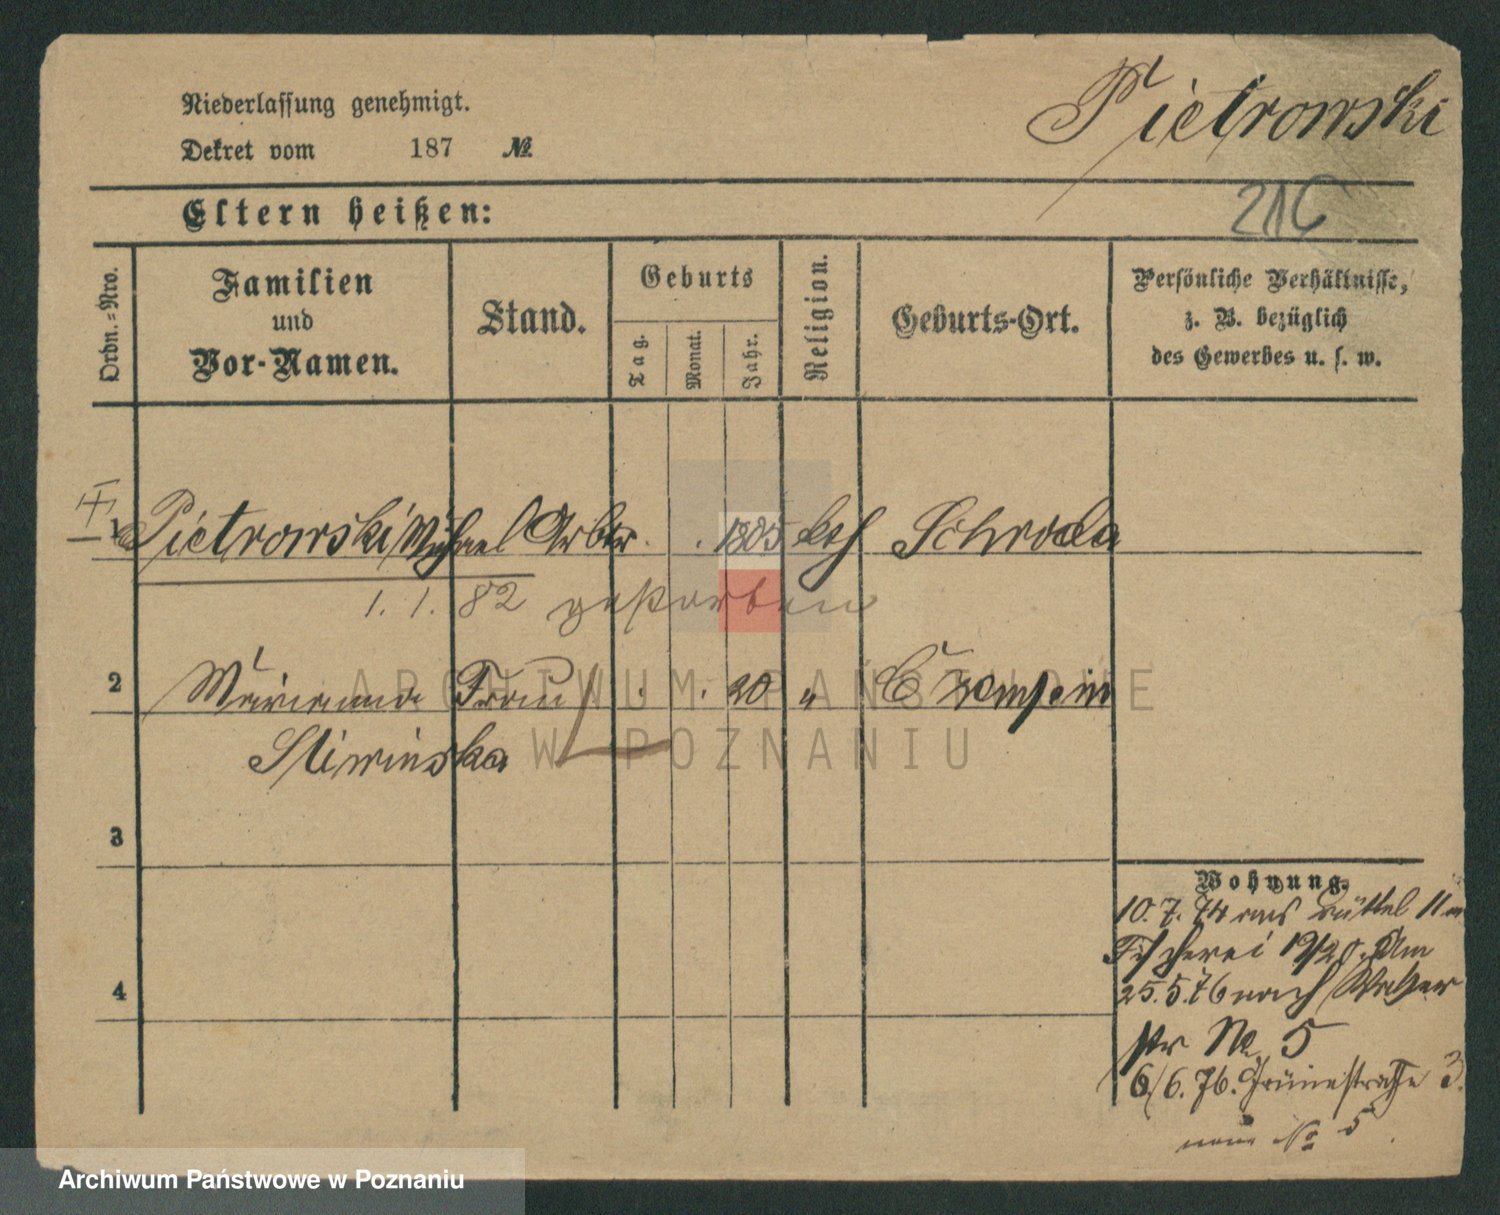 Niederlassung genehmigt.
Dekret vom 187 №
Pietrowski
Eltern heißen:
Ordn.-Nro.
Familien
und
Vor-Namen.
Stand.
Geburts
Tag.
Monat.
Jahr.
Religion.
Geburts-Ort.
Persönliche Verhältnisse,
z. B. bezüglich
des Gewerbes u. s. w.
1 Pietrowski Michael Arbtr. . 1805 kth Schroda
1. 1. 82 gestorben
2 Marianna Frau . . 20 " Czempin
Sliwinska
3
4
Wohnung.
10. 7. 74 aus Büttel 11
Fischerei 19/20. Am
25.5.76 nach
str No 5
6/6. 76. Grünestrasse 3.
neue No 5.
ARCHIWUM PAŃSTWOWE
W POZNANIU
Archiwum Państwowe w Poznaniu